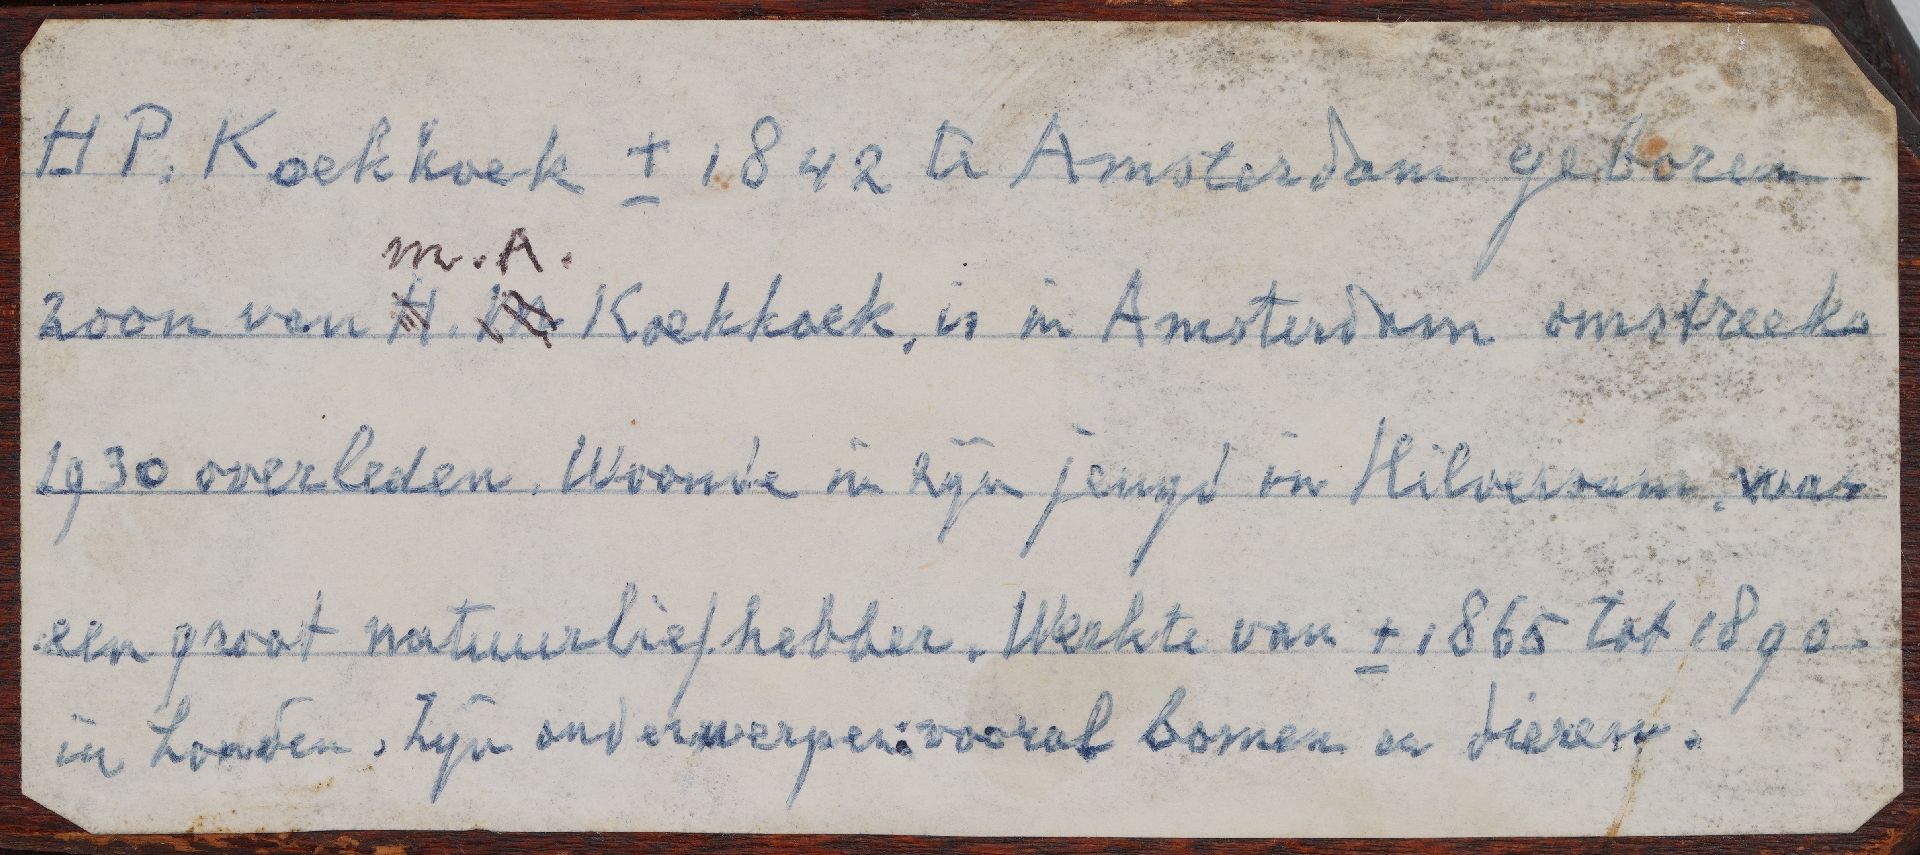 H P. Koekkoek ± 1842 te Amsterdam geboren
m. A.
zoon van H. M Koekkoek, is in Amsterdam omstreeks
1930 overleden. Woonde in zijn jeugd in Hilversum, was
een groot natuurliefhebber. Werkte van ± 1865 tot 1890
in Londen. Zijn onderwerpen: vooral bomen en dieren.